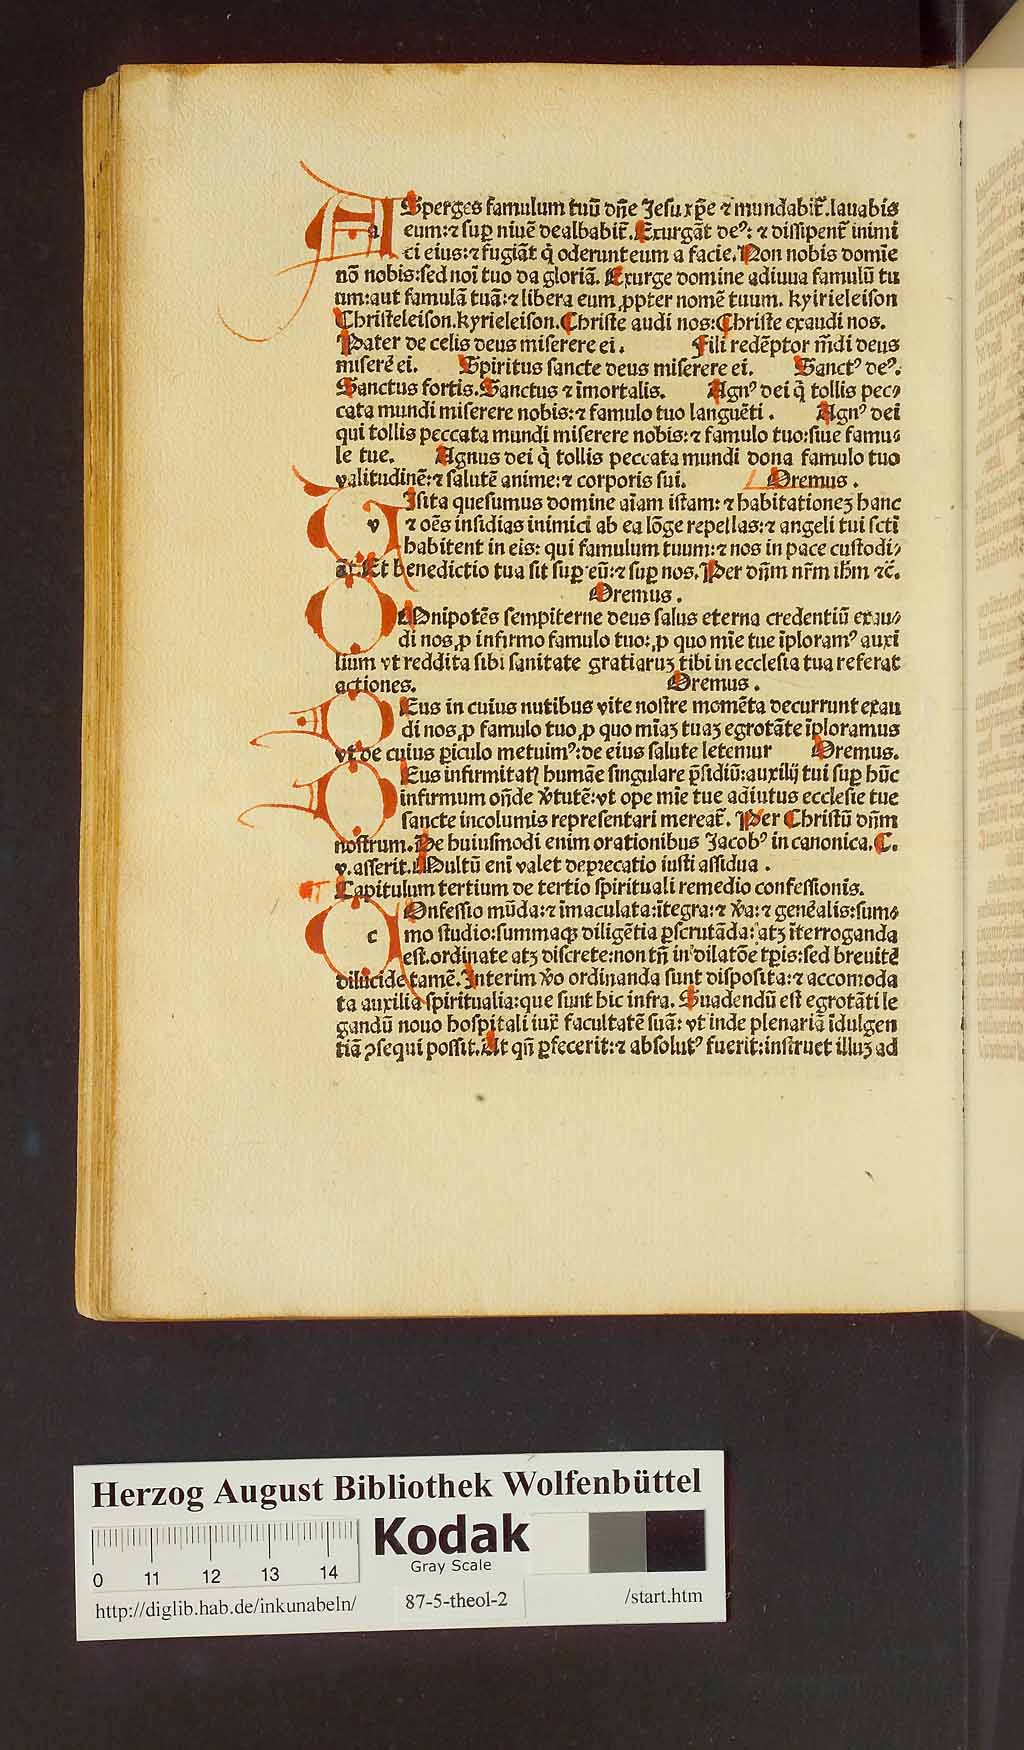 ASperges famulum tuū dn̄e Jesu xp̄e ⁊ mundabit᷑. lauabis
eum: ⁊ sup niuē dealbabit᷑. Exurgāt deꝰ: ⁊ dissipent᷑ inimi
ci eius: ⁊ fugiāt q̇ oderunt eum a facie. Non nobis domīe
nō nobis: sed noī tuo da gloriā. Exurge domine adiuua famulū tu
um: aut famulā tuā: ⁊ libera eum ꝓpter nomē tuum. kyirieleison
Christeleison. kyrieleison. Christe audi nos: Christe exaudi nos.
Pater de celis deus miserere ei. Fili redēptor mūdi deus
miserē ei. Spiritus sancte deus miserere ei. Sanctꝰ deꝰ.
Sanctus fortis. Sanctus ⁊ īmortalis. Agnꝰ dei q̇ tollis pec⸗
cata mundi miserere nobis: ⁊ famulo tuo languēti. Agnꝰ dei
qui tollis peccata mundi miserere nobis: ⁊ famulo tuo: siue famu⸗
le tue. Agnus dei q̇ tollis peccata mundi dona famulo tuo
valitudinē: ⁊ salutē anime: ⁊ corporis sui. Oremus.
VIsita quesumus domine aīam istam: ⁊ habitationeꝫ hanc
⁊ oēs insidias inimici ab ea lōge repellas: ⁊ angeli tui scti
habitent in eis: qui famulum tuum: ⁊ nos in pace custodi⸗
āt. Et benedictio tua sit sup eū: ⁊ sup nos. Per dn̄m nr̄m ihm̄ ⁊c̄.
Oremus.
OMnipotēs sempiterne deus salus eterna credentiū exau⸗
di nos ꝓ infirmo famulo tuo: ꝓ quo mīe tue īploramꝰ auxi
lium vt reddita sibi sanitate gratiaruꝫ tibi in ecclesia tua referat
actiones. Oremus.
DEus in cuius nutibus vite nostre momēta decurrunt exau
di nos ꝓ famulo tuo ꝓ quo mīaꝫ tuaꝫ egrotāte īploramus
vt de cuius ꝑiculo metuimꝰ: de eius salute letemur Oremus.
DEus infirmitatꝭ humāe singulare p̄sidiū: auxilij tui sup hūc
infirmum on̄de v̓tutē: vt ope mīe tue adiutus ecclesie tue
sancte incolumis representari mereat᷑. Per Christū dn̄m
nostrum. De huiusmodi enim orationibus Jacobꝰ in canonica. C.
v. asserit. Multū enī valet deprecatio iusti assidua.
Capitulum tertium de tertio spirituali remedio confessionis.
COnfessio mūda: ⁊ īmaculata: ītegra: ⁊ v̓a: ⁊ gen̓alis: sum⸗
mo studio: summaqꝫ diligētia ꝑscrutāda: atqꝫ īterroganda
est. ordinate atqꝫ discrete: non tn̄ in dilatōe tp̄is: sed breuit᷑ ⁊
dilucide tamē. Interim v̓o ordinanda sunt disposita: ⁊ accomoda
ta auxilia spiritualia: que sunt hic infra. Suadendū est egrotāti le
gandū nouo hospitali iux̄ facultatē suā: vt inde plenariā īdulgen
tiā ꝯsequi possit. At qn̄ ꝑfecerit: ⁊ absolutꝰ fuerit: instruet illuꝫ ad
Herzog August Bibliothek Wolfenbüttel
Kodak
Gray Scale
0 11 12 13 14
http://diglib.hab.de/inkunabeln/ 87-5-theol-2 /start.htm